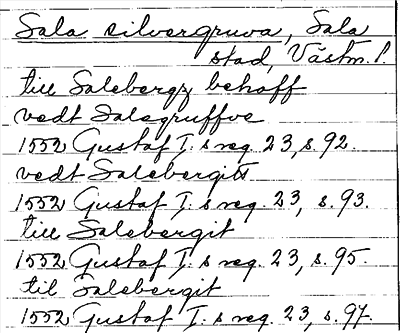 Sala silvergruva, Sala
stad, Västm. l.
till Salebergz behoff
vedt Salegruffve
1552 Gustaf I:s reg. 23, s. 92.
vedt Salebergitt
1552 Gustaf I:s reg. 23, s. 93.
till Salebergit
1552 Gustaf I:s reg. 23, s. 95.
til Salebergit
1552 Gustaf I:s reg. 23, s. 97.